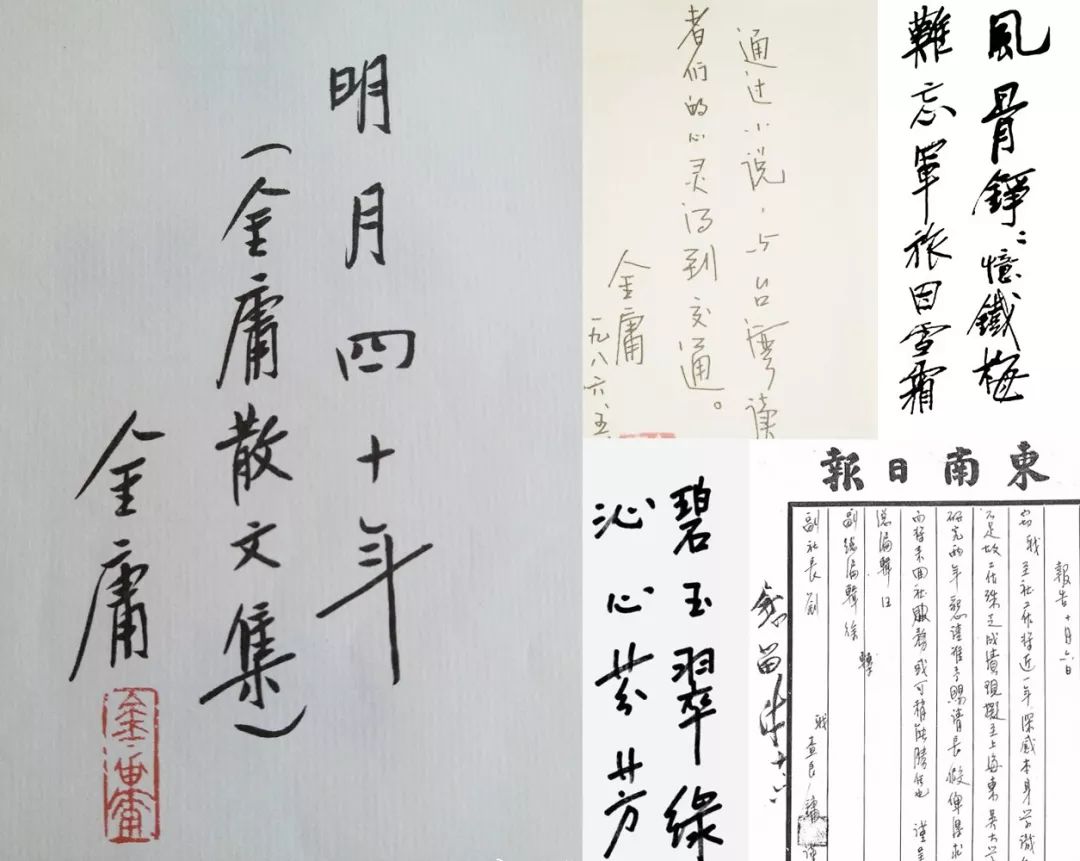 明月四十年
（金庸散文集）
金庸
金庸
通过小说，与台湾读
者们的心灵得到交通。
金庸
一九八六、五
風骨錚錚憶鐵梅
難忘軍旅困雪霜
碧玉翠綠
沁心芬芳
東南日報
報告 十月六日
竊職至社工作將近一年深感本身學識
不足故工作殊乏成績現擬至上海東吳大學
研究兩年懇請准予賜請長假俾得
而後來回社服務或可稍能勝任也 謹呈
總編輯汪
副總編輯徐 轉
副社長劉
職查良鏞謹